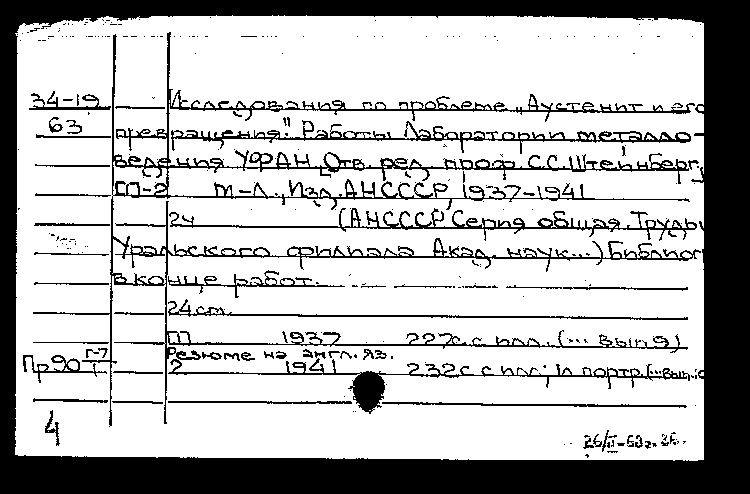 34-19 Исследования по проблеме „Аустенит и его
63 превращения." Работы Лаборатории металло-
ведения УФАН. Отв. ред. проф. С.С. Штейнберг.
[1]-2 М-Л., Изд. АН СССР, 1937-1941
2ч (АН СССР Серия общая. Труды
Уральского филиала Акад. наук...) Библиог
в конце работ.
24 см.
[1] 1937 227 с. с илл. (... вып. 9)
Резюме на англ. яз.
Пр 90 2 1941 232 с с илл; 1л портр. (... вып.
4